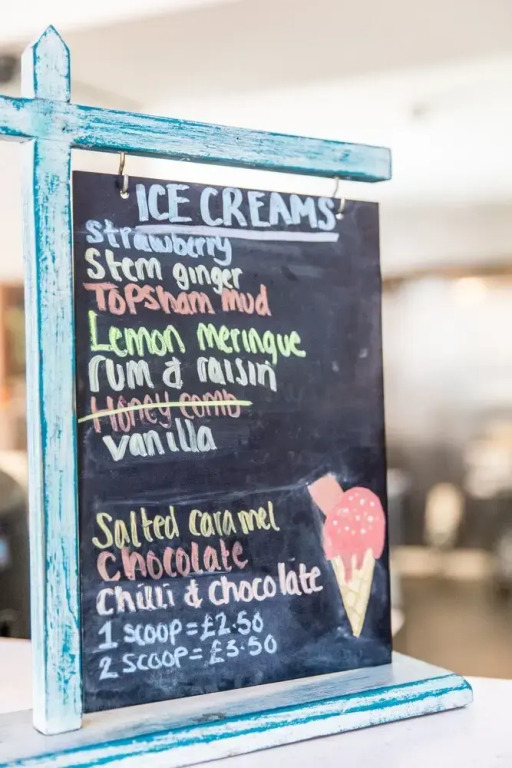 ICE CREAMS
Strawberry
Stem ginger
Topsham mud
Lemon meringue
rum & raisin
Honey comb
vanilla
Salted caramel
Chocolate
Chilli & chocolate
1 scoop = £2.50
2 scoop = £3.50